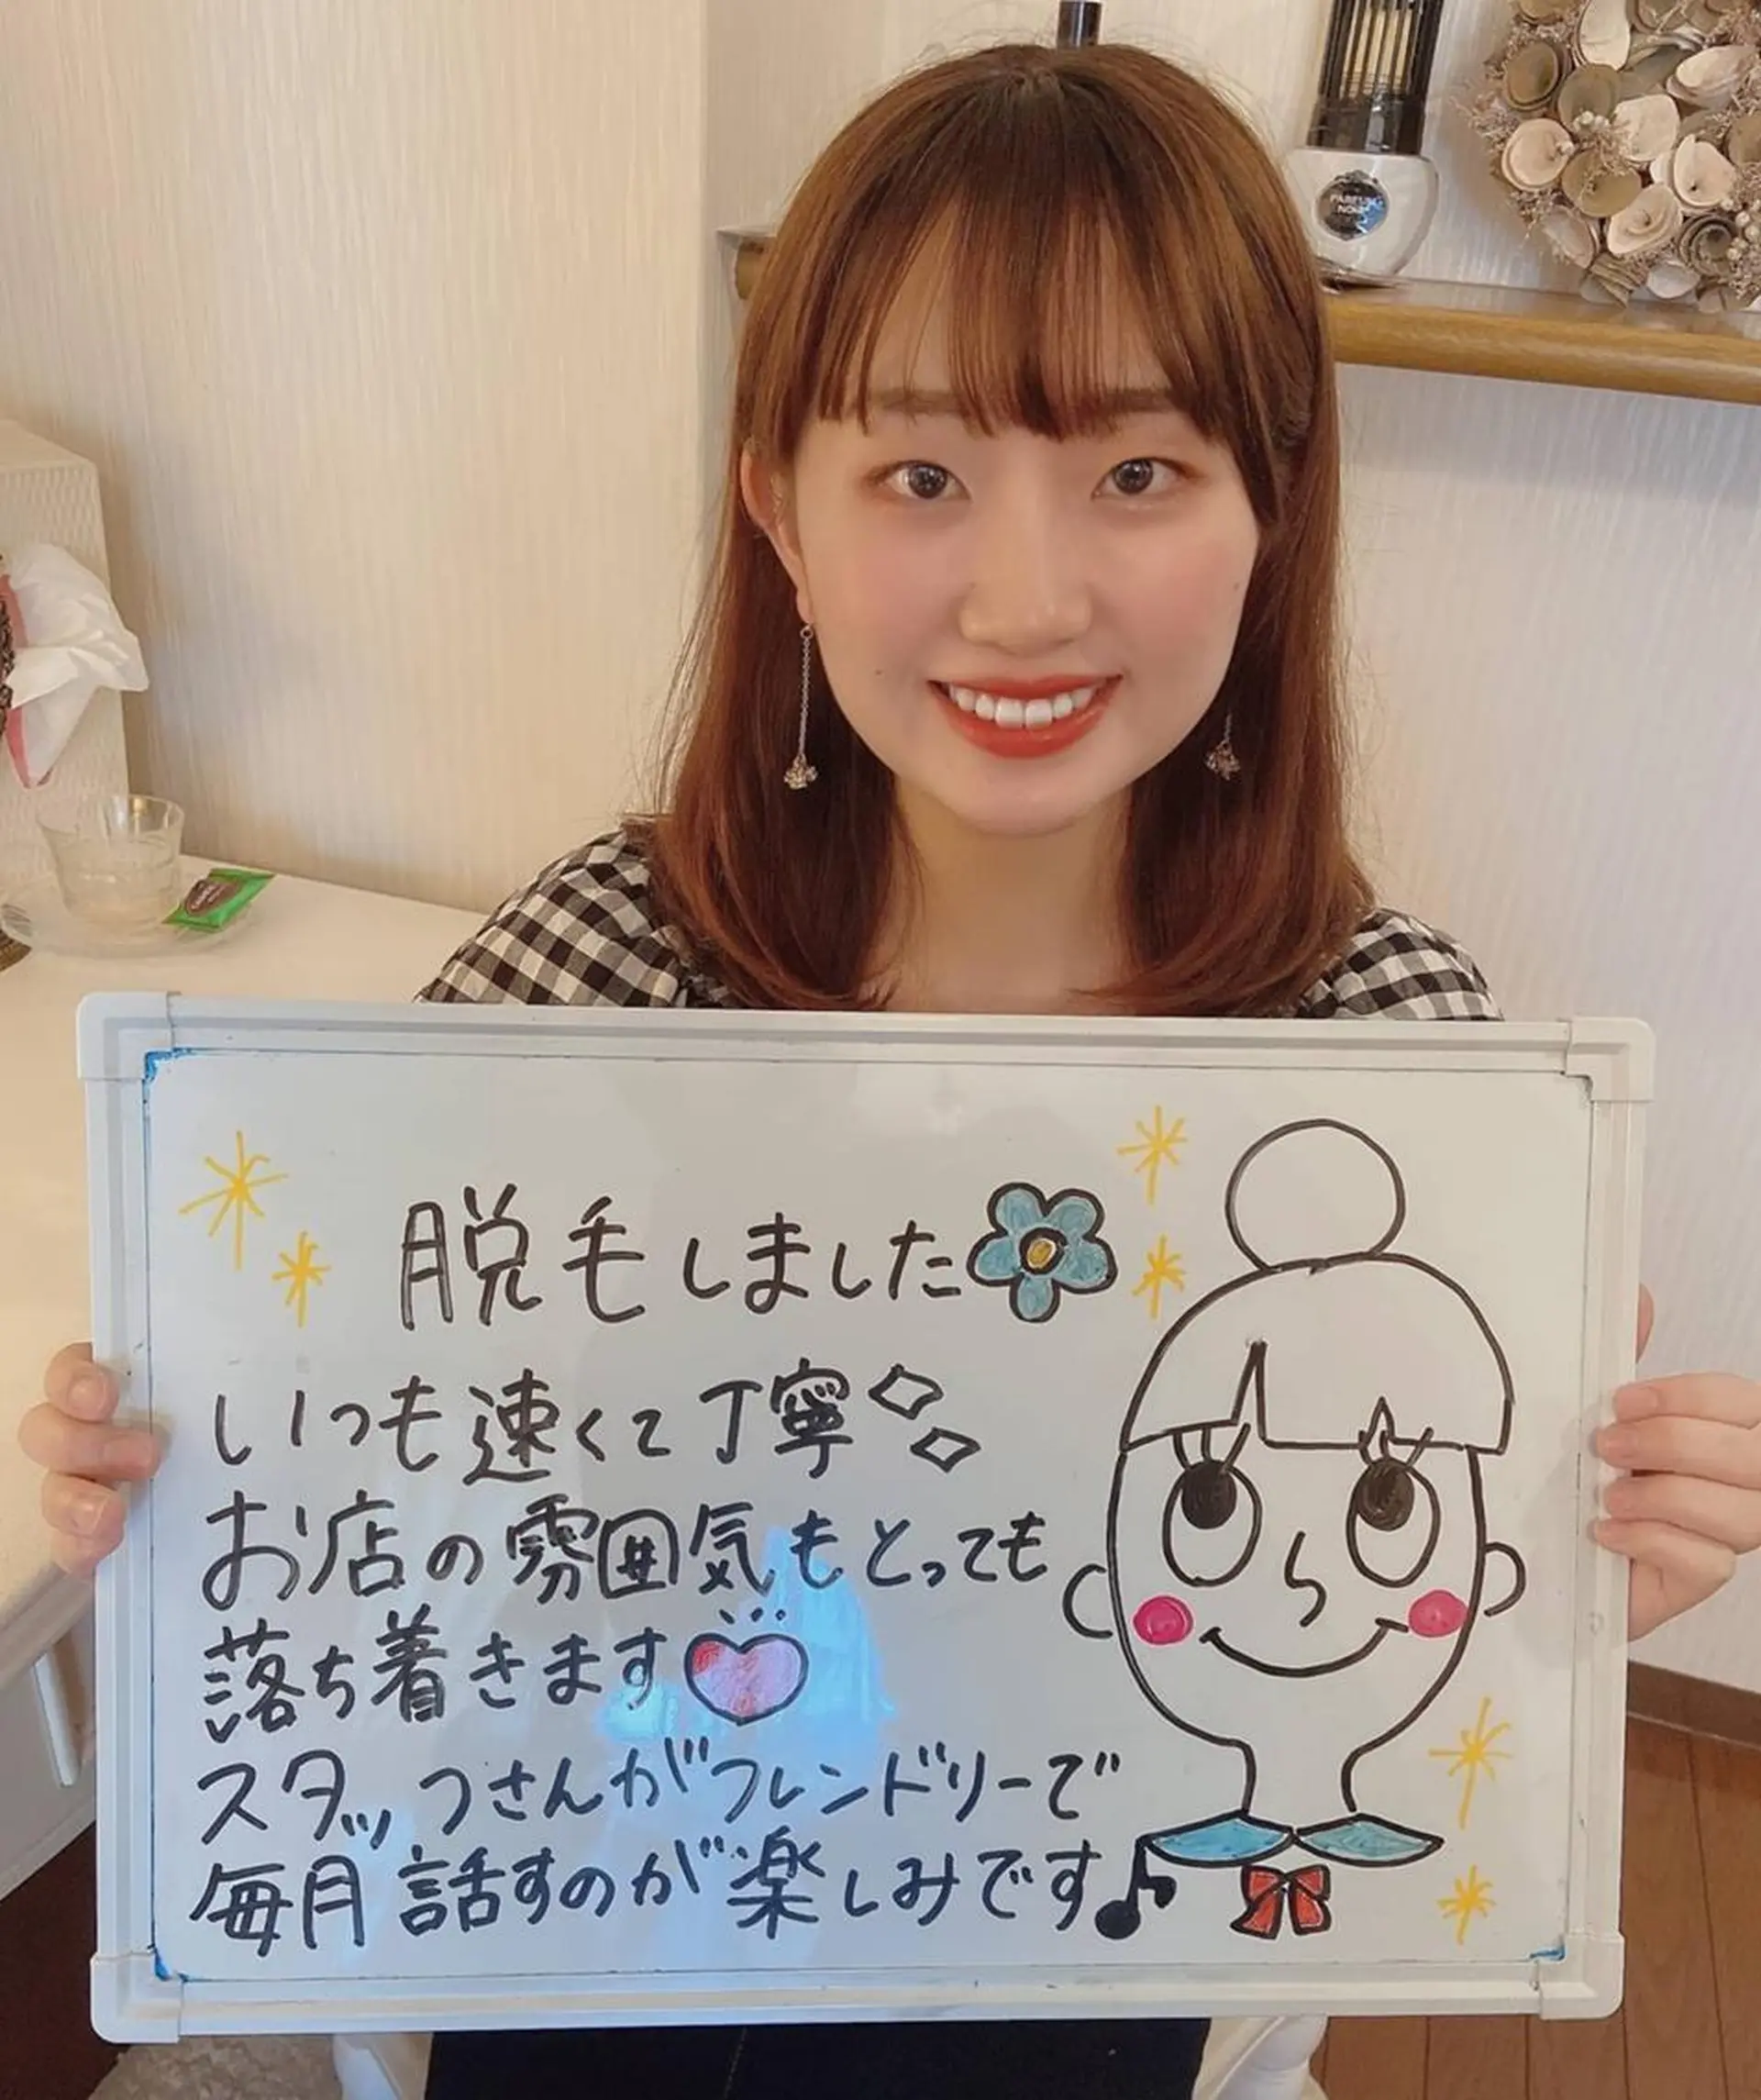 脱毛しました
いつも速くて丁寧
お店の雰囲気もとっても
落ち着きます
スタッフさんがフレンドリーで
毎月話すのが楽しみです♪
PARFUM
NOIR